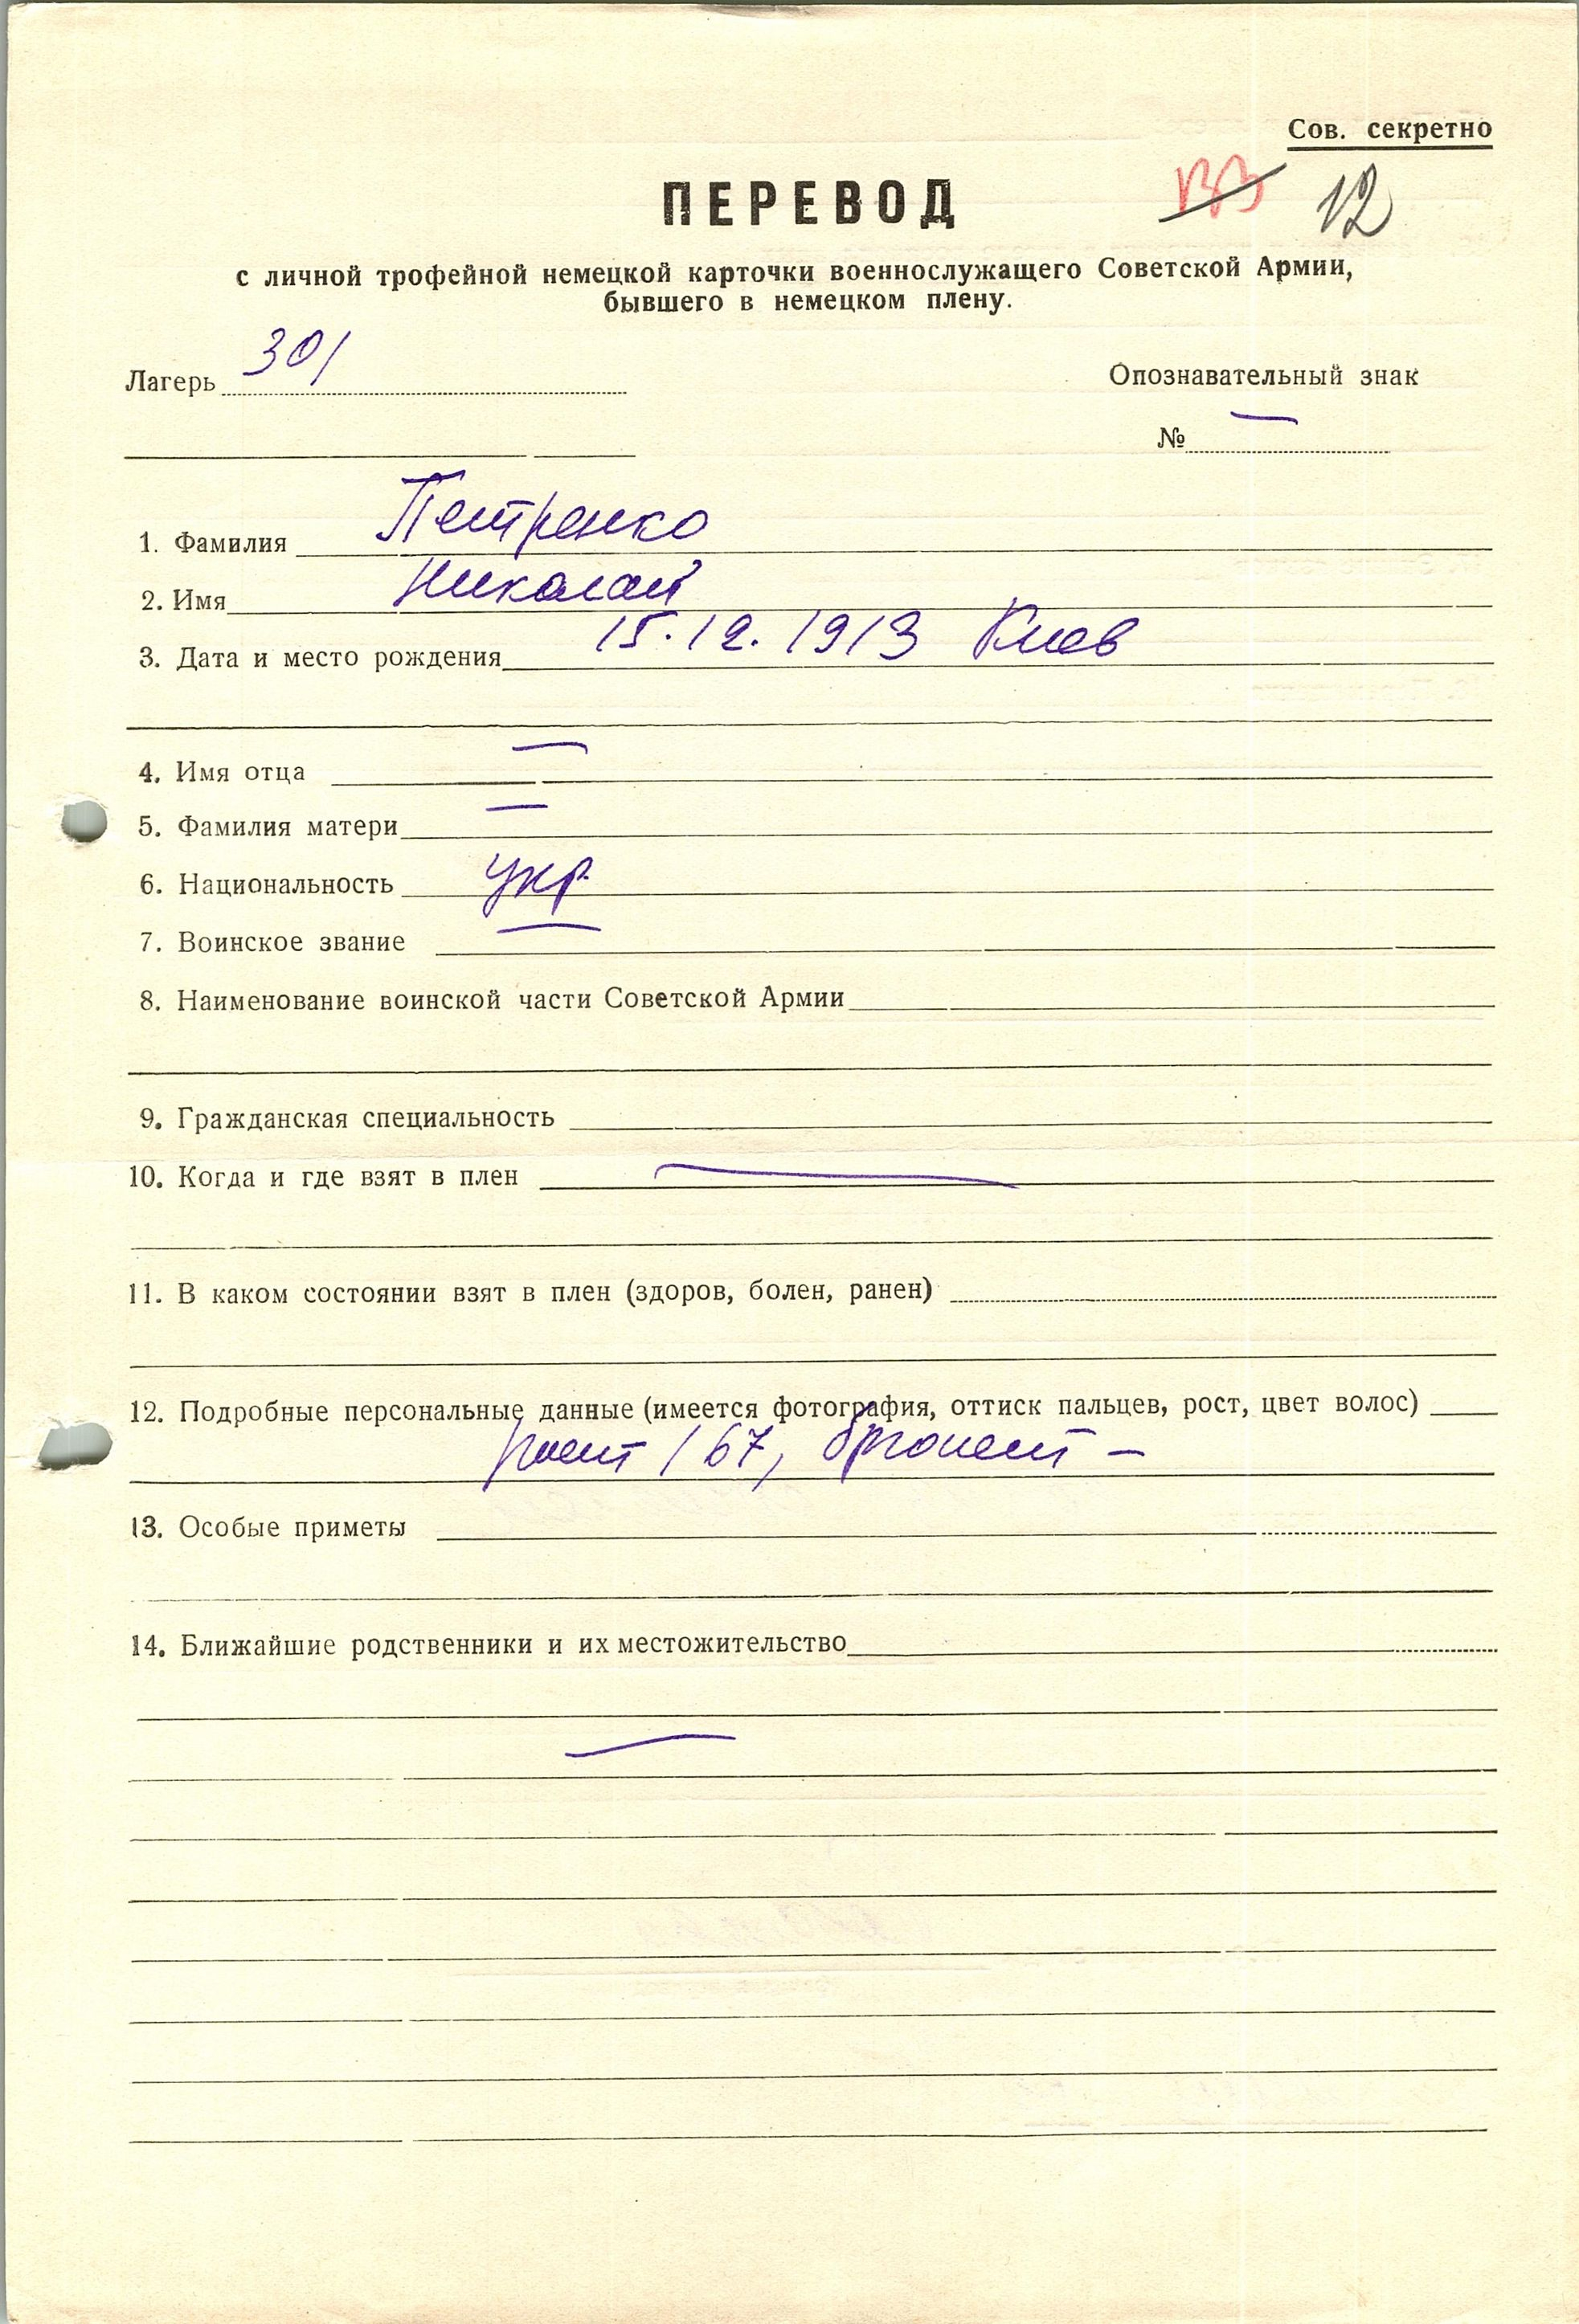 Сов. секретно
ПЕРЕВОД
12
с личной трофейной немецкой карточки военнослужащего Советской Армии,
бывшего в немецком плену.
Лагерь 301
Опознавательный знак
№ —
1. Фамилия Петренко
2. Имя Николай
3. Дата и место рождения 15.12.1913 Киев
4. Имя отца —
5. Фамилия матери —
6. Национальность укр.
7. Воинское звание —
8. Наименование воинской части Советской Армии
9. Гражданская специальность
10. Когда и где взят в плен —
11. В каком состоянии взят в плен (здоров, болен, ранен)
12. Подробные персональные данные (имеется фотография, оттиск пальцев, рост, цвет волос)
рост 167, брюнет —
13. Особые приметы
14. Ближайшие родственники и их местожительство
—